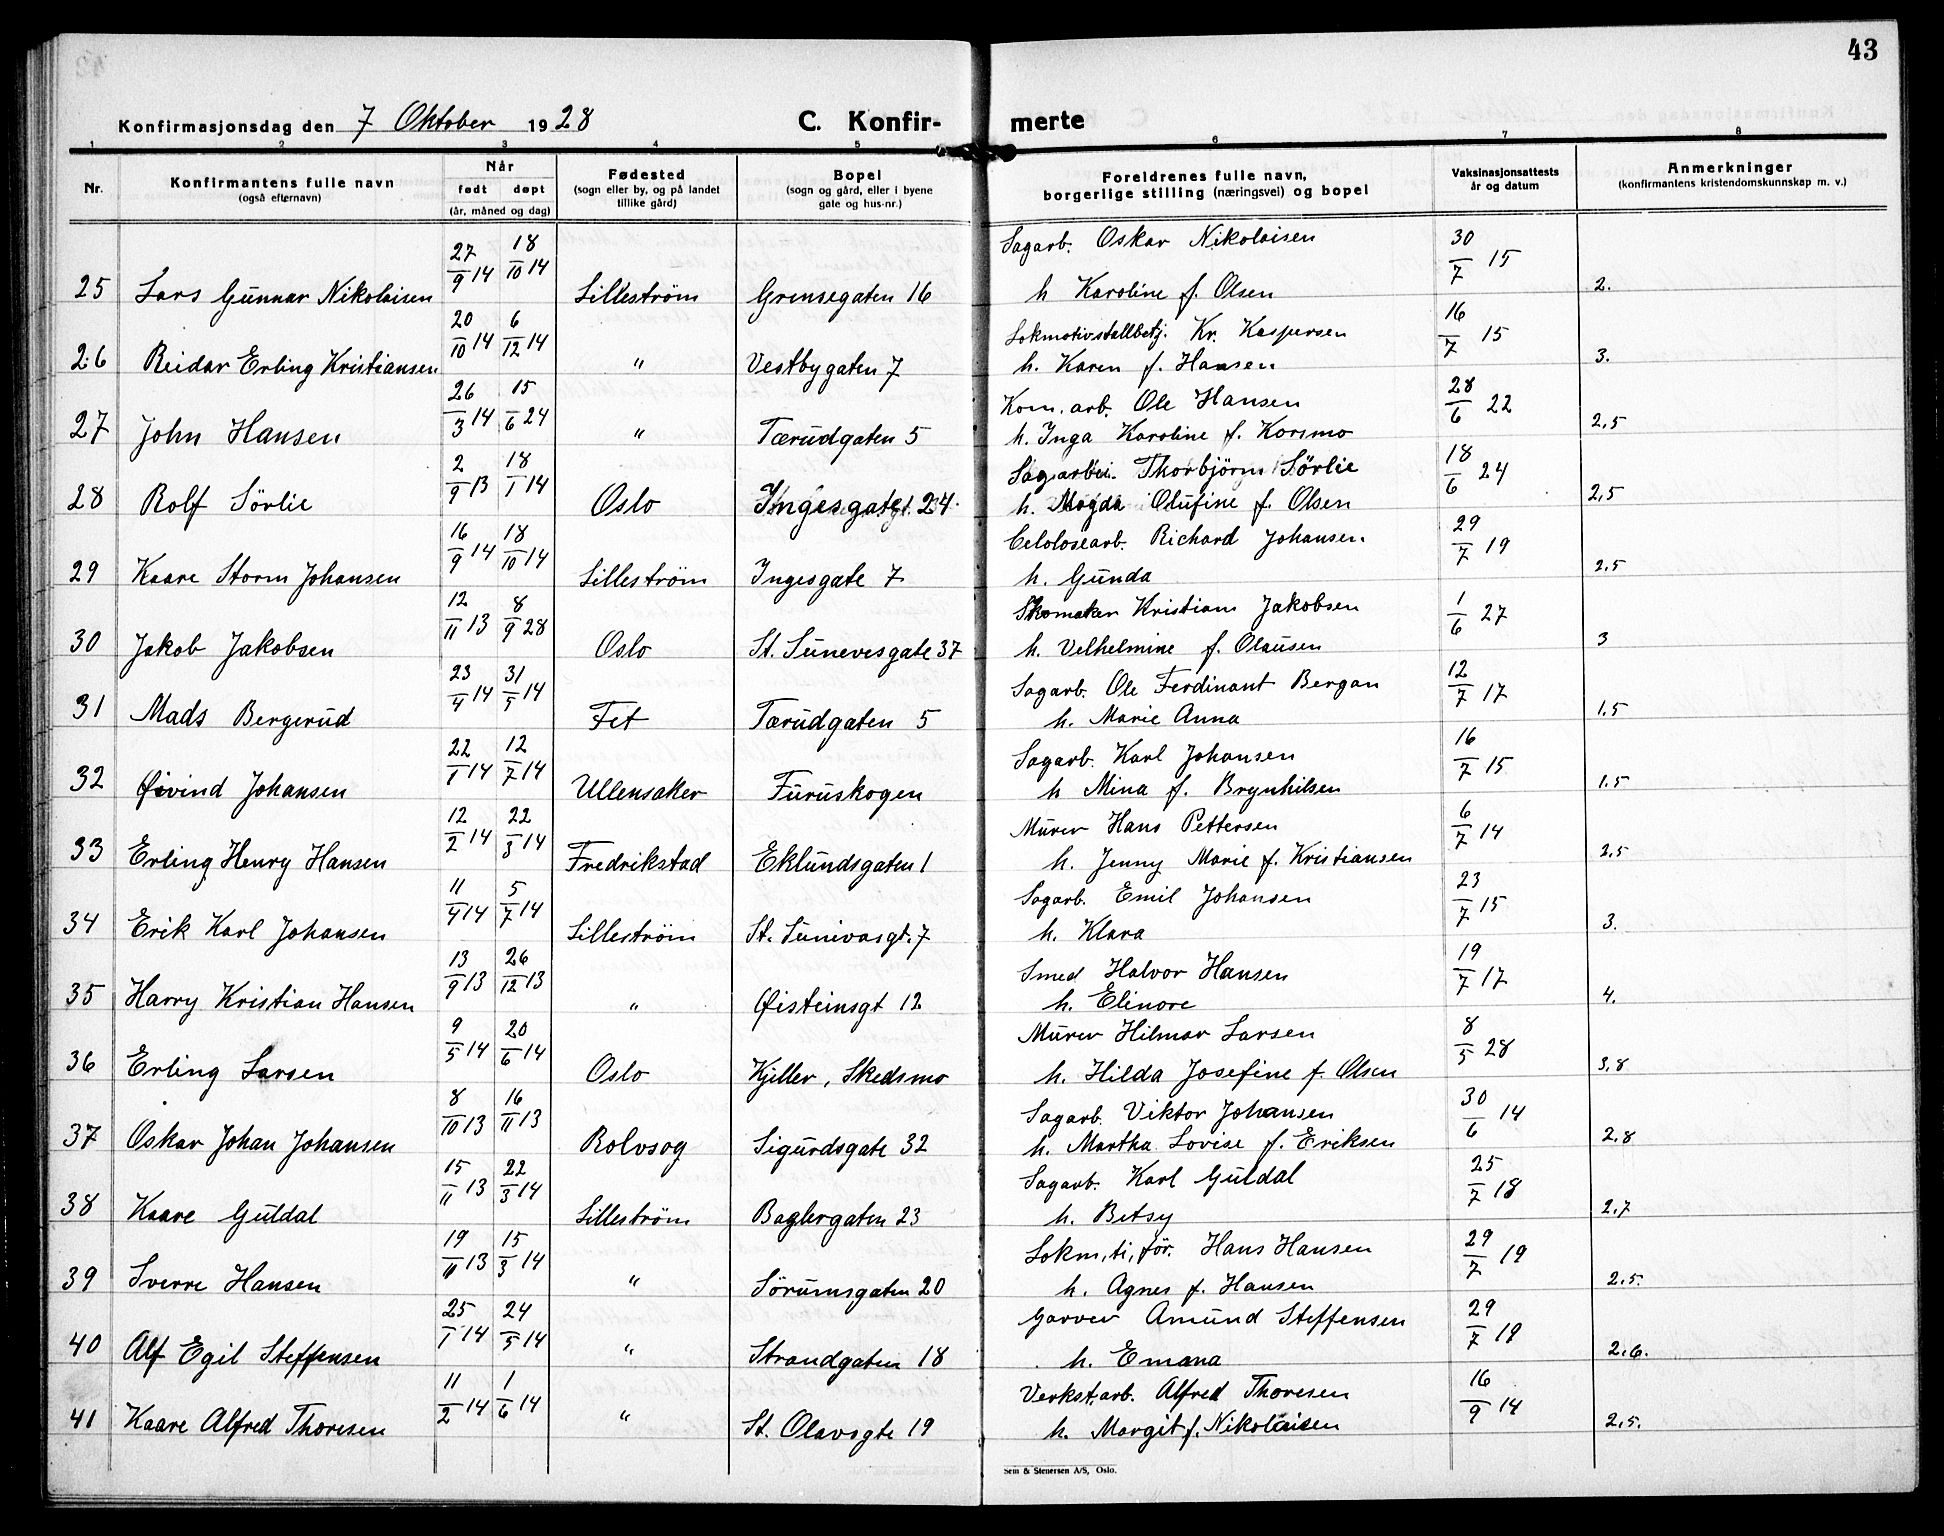 43
Konfirmasjonsdag den 7 Oktober 1928 C. Konfir- merte
1 2 3 4 5 6 7 8
Nr. Konfirmantens fulle navn (også efternavn) Når født døpt (år, måned og dag) Fødested (sogn eller by, og på landet tillike gård) Bopel (sogn og gård, eller i byene gate og hus-nr.) Foreldrenes fulle navn, borgerlige stilling (næringsvei) og bopel Vaksinasjonsattests år og datum Anmerkninger (konfirmantens kristendomskunnskap m. v.)
25 Lars Gunnar Nikolaisen 27/9 14 18/10 14 Lilleström Grensegaten 16 Sagarb. Oskar Nikolaisen 30/7 15
h Karoline f. Olsen 2.
26 Reidar Erling Kristiansen 20/10 14 6/12 14 " Vestbygaten 7 Lokmotivstallbetj. Kr. Kaspersen 16/7 15
h. Karen f. Hansen 3.
27 John Hansen 26/3 14 15/6 24 " Tærudgaten 5 Kom. arb. Ole Hansen 28/6 22
h. Inga Karoline f. Korsmo 2,5
28 Rolf Sörlie 2/9 13 18/1 14 Oslo Ingesgate 24. Sagarbei. Thorbjörn Sörlie 18/6 24
h. Magda Olufine f. Olsen 2,5
29 Kaare Storm Johansen 16/9 14 18/10 14 Lilleström Ingesgate 7 Celolosearb. Richard Johansen 29/7 19
h. Gunda 2,5
30 Jakob Jakobsen 12/11 13 8/9 28 Oslo St. Sunevesgate 37 Skomaker Kristian Jakobsen 1/6 27
h. Velhelmine f. Olausen 3
31 Mads Bergerud 23/4 14 31/5 14 Fet Tærudgaten 5 Sagarb. Ole Ferdinant Bergan 12/7 17
h. Marie Anna 1.5
32 Øivind Johansen 22/1 14 12/7 14 Ullensaker Furuskogen Sagarb. Karl Johansen 16/7 15
h Mina f. Brynhilsen 1.5
33 Erling Henry Hansen 12/2 14 22/3 14 Fredrikstad Eklundsgaten 1 Murer Hans Pettersen 6/7 14
h. Jenny Marie f. Kristiansen 2,5
34 Erik Karl Johansen 11/4 14 5/7 14 Lilleström St. Sunivasgt. 7 Sagarb. Emil Johansen 23/7 15
h. Klara 3.
35 Harry Kristian Hansen 13/9 13 26/12 13 " Øisteinsgt 12 Smed Halvor Hansen 19/7 17
h. Elinore 4.
36 Erling Larsen 9/5 14 20/6 14 Oslo Kjeller, Skedsmo Murer Hilmar Larsen 8/5 28
h. Hilda Josefine f. Olsen 3,8
37 Oskar Johan Johansen 8/10 13 16/11 13 Rolvsog Sigurdsgate 32 Sagarb. Viktor Johansen 30/6 14
h. Martha Lovise f. Eriksen 2,8
38 Kaare Guldal 15/11 13 22/3 14 Lilleström Baglergaten 23 Sagarb. Karl Guldal 25/7 18
h. Betsy 2,7
39 Sverre Hansen 19/11 13 15/3 14 " Sörumsgaten 20 Lokm,ti,för. Hans Hansen 29/7 19
h. Agnes f. Hansen 2,5.
40 Alf Egil Steffensen 25/1 14 24/5 14 " Strandgaten 18 Garver Amund Steffensen 29/7 19
h. Emana 2,6.
41 Kaare Alfred Thoresen 11/2 14 1/6 14 " St. Olavsgte 19 Verkst.arb. Alfred Thoresen 16/9 14
h. Margit f. Nikolaisen 2,5.
Sem & Stenersen A/S, Oslo.